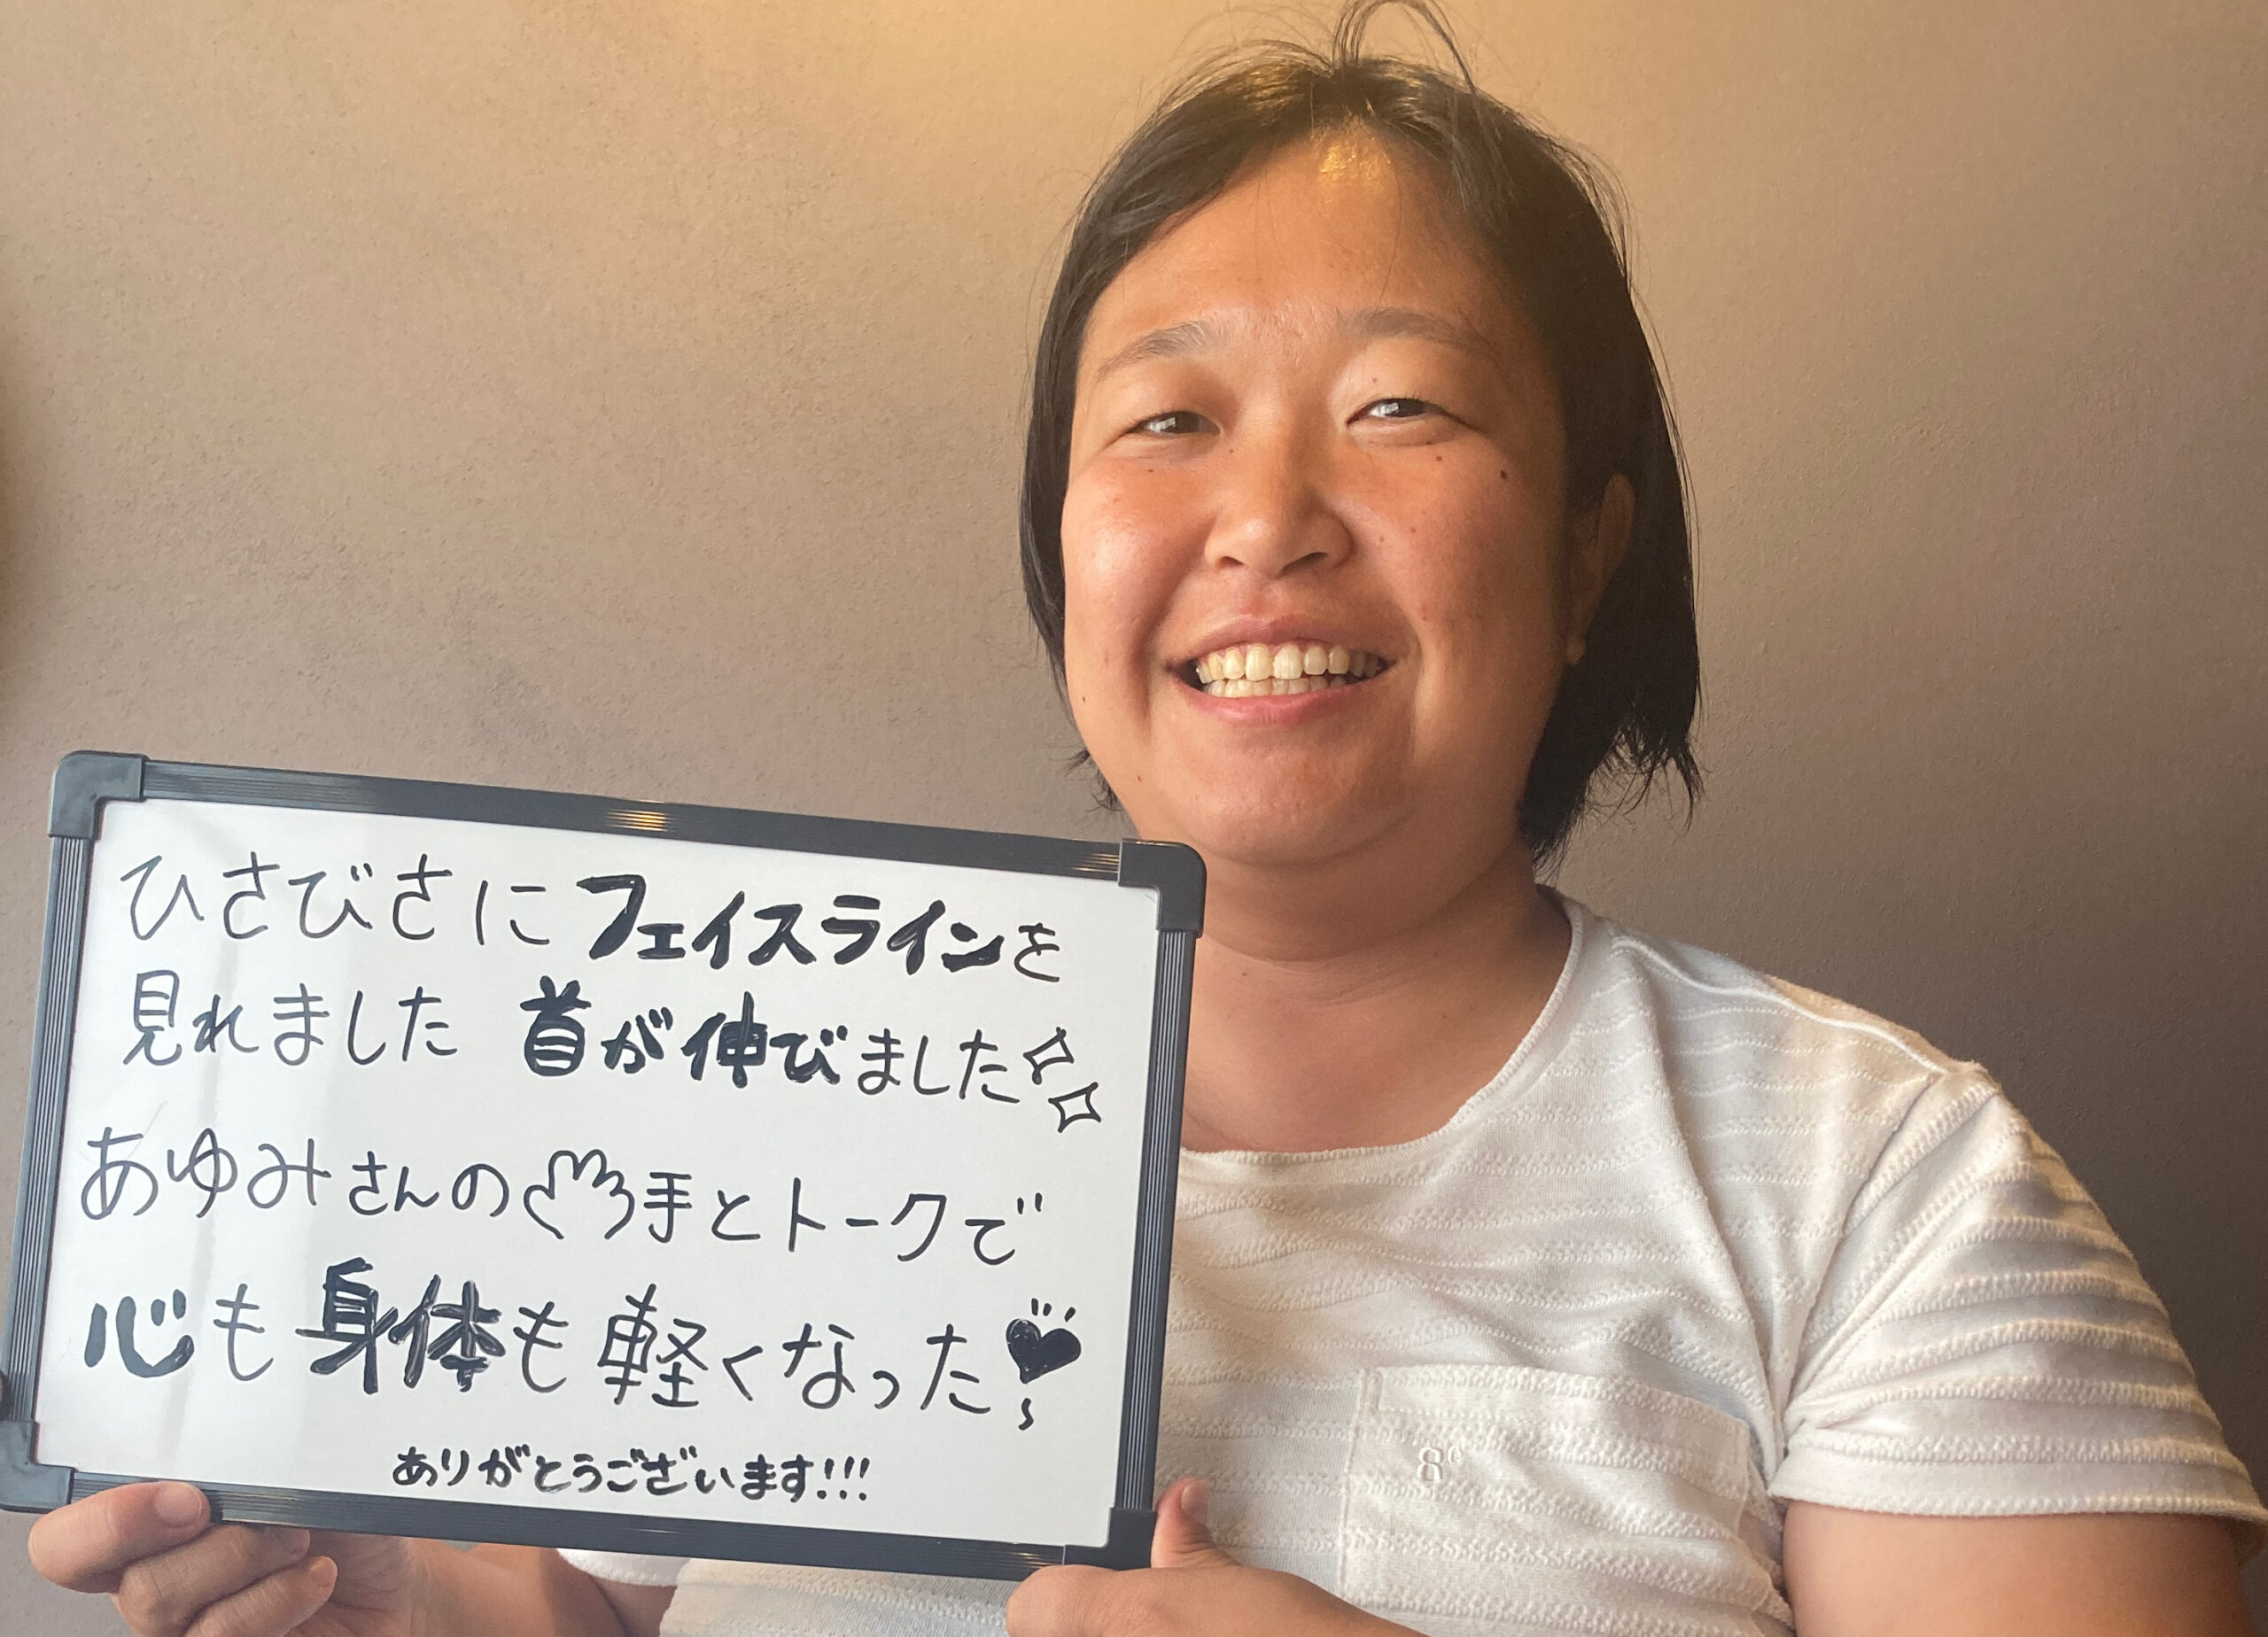 ひさびさにフェイスラインを
見れました 首が伸びました
あゆみさんの手とトークで
心も身体も軽くなった
ありがとうございます!!!
8°